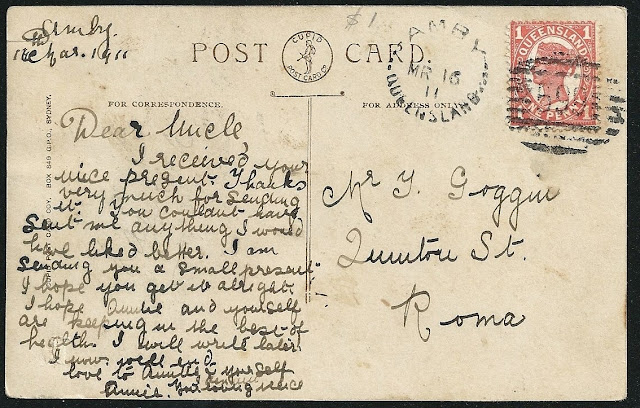 Amby
16th Mar. 1911
$1
POST CARD.
CUPID
POST CARD CO
AMBY
MR 16
11
QUEENSLAND
QUEENSLAND
1 1
ONE PENNY
FOR CORRESPONDENCE.
FOR ADDRESS ONLY
BOX 649 G.P.O., SYDNEY.
Dear Uncle
I received your
nice present. Thanks
very much for sending
it. You couldnt have
sent me anything I would
have liked better. I am
sending you a small present
I hope you get it alright.
I hope Auntie and yourself
are keeping in the best of
health. I will write later.
I now will end
love to Auntie & yourself
Annie. Your loving niece
Mr T. Goggin
St.
Roma